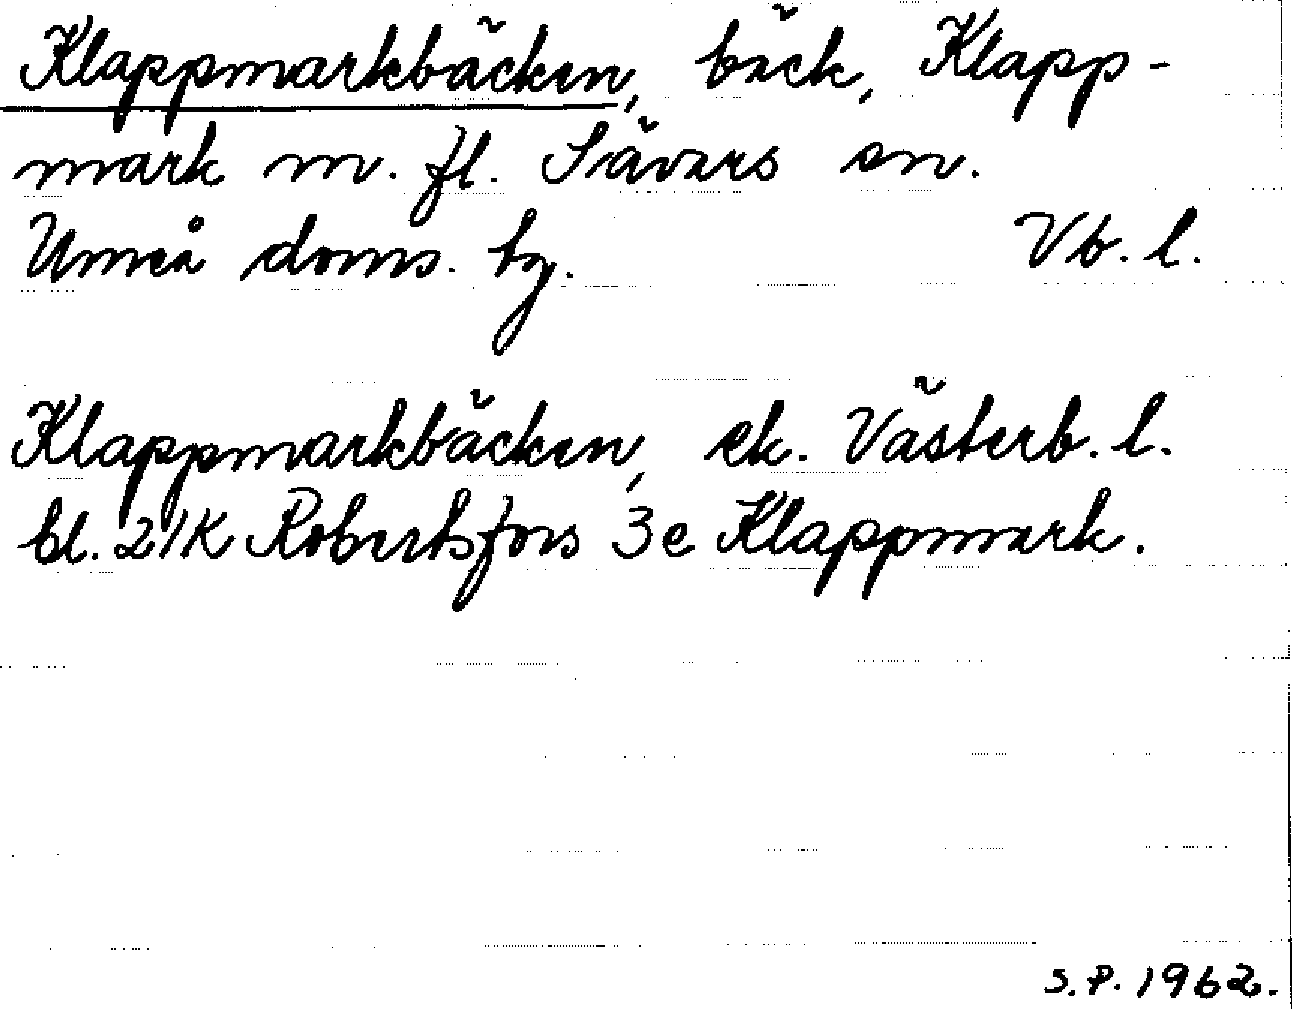 Klappmarkbäcken, bäck, Klapp-
mark m. fl. Sävars sn.
Umeå doms. hg. Vb. l.
Klappmarkbäcken, ek. Västerb. l.
bl. 21K Robertsfors 3e Klappmark.
S.P. 1962.